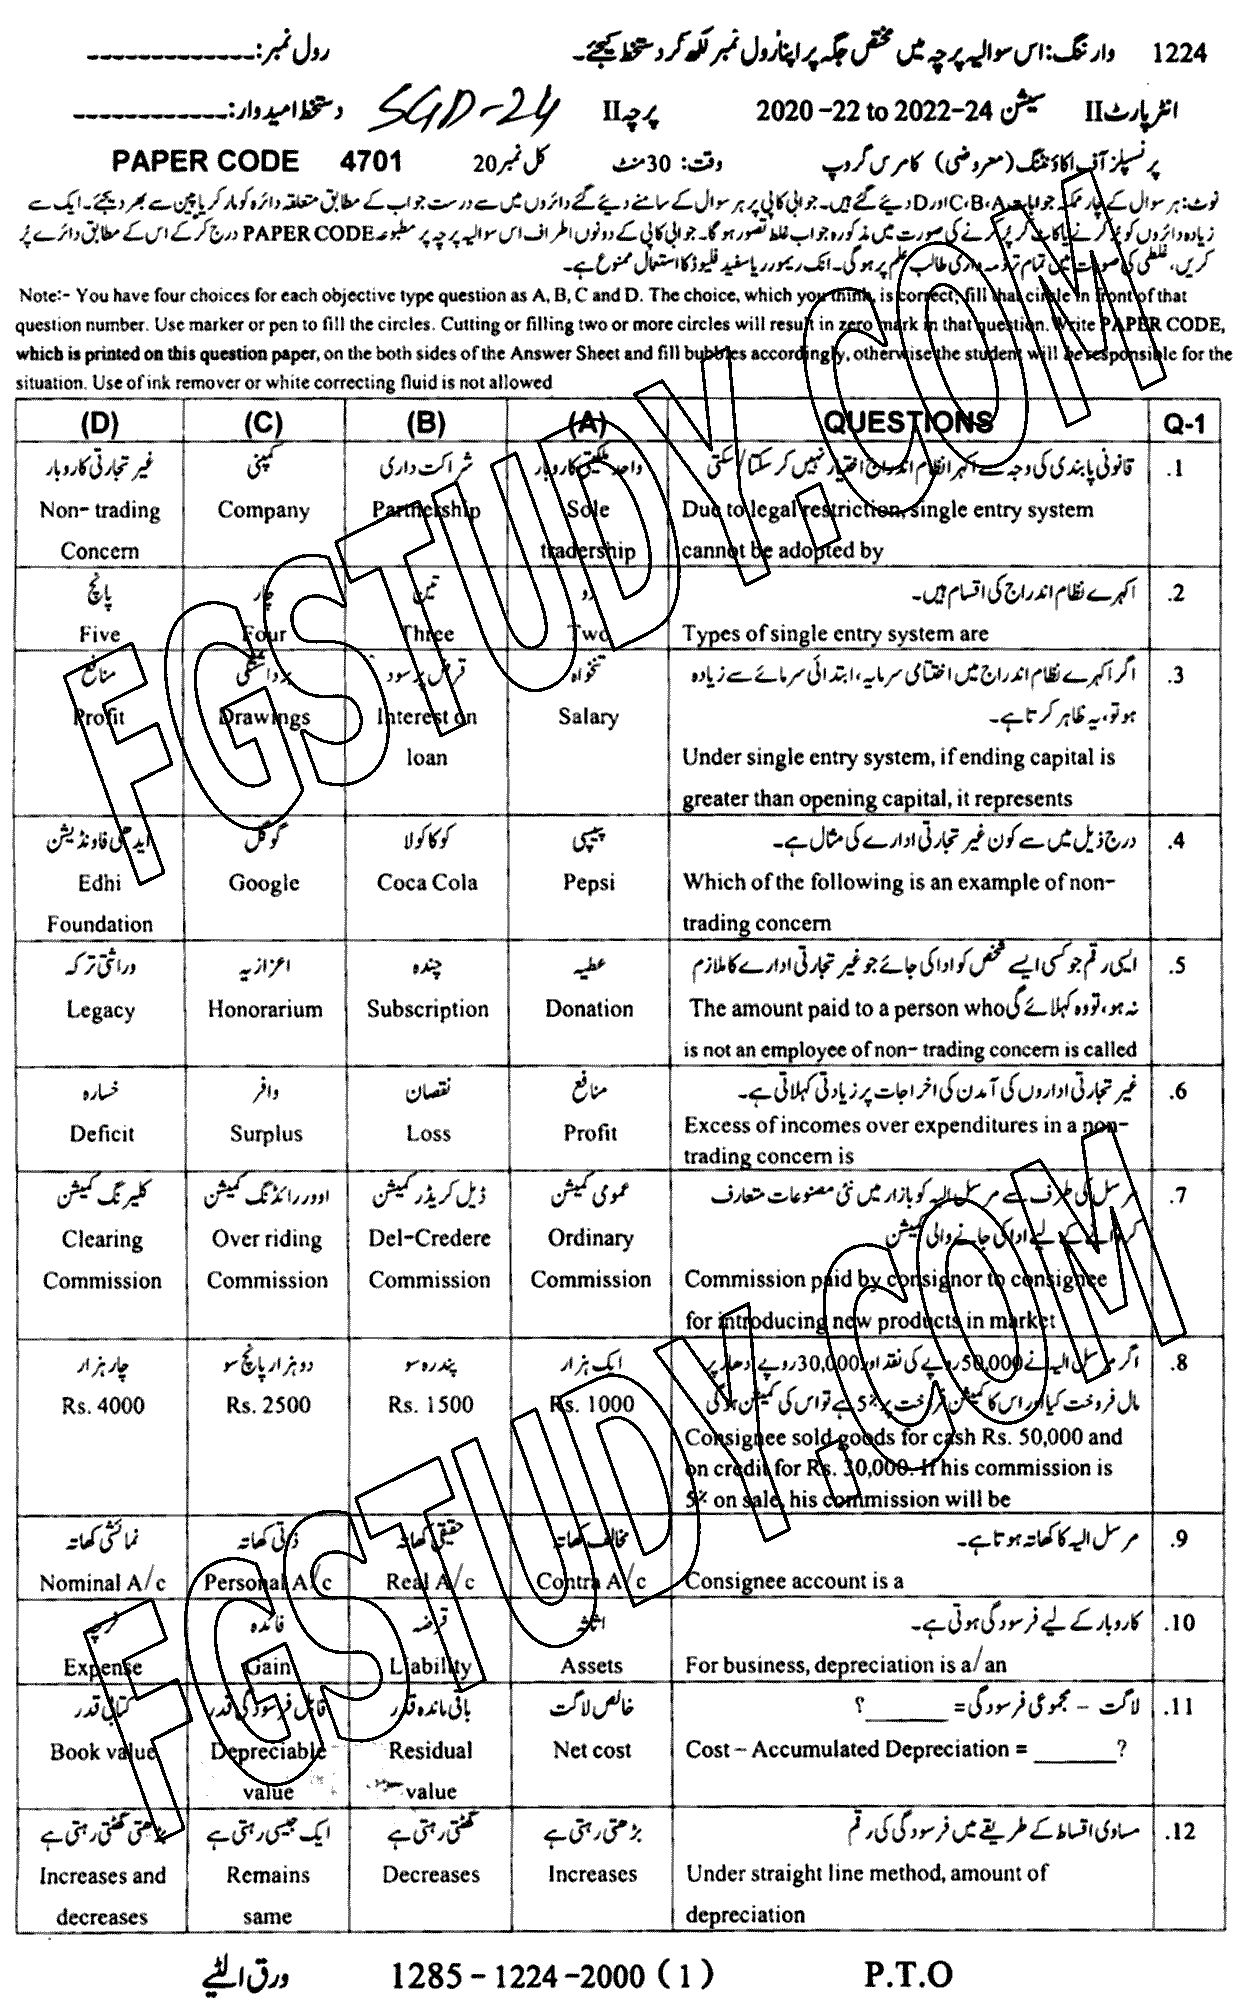 1224 وارننگ: اس سوالیہ پرچہ میں مختص جگہ پر اپنا رول نمبر لکھ کر دستخط کیجئے۔ رول نمبر: -------------
انٹر پارٹ II سیشن 2020-22 to 2022-24 پرچہ II SGD-24 دستخط امیدوار: -------------
پرنسپلز آف اکاؤنٹنگ (معروضی) کامرس گروپ وقت: 30 منٹ کل نمبر 20 PAPER CODE 4701
نوٹ: ہر سوال کے چار ممکنہ جوابات A، B، C اور D دیئے گئے ہیں۔ جوابی کاپی پر ہر سوال کے سامنے دیئے گئے دائروں میں سے درست جواب کے مطابق متعلقہ دائرہ کو مارکر یا پین سے بھر دیجئے۔ ایک سے
زیادہ دائروں کو پُر کرنے یا کاٹ کر پُر کرنے کی صورت میں مذکورہ جواب غلط تصور ہو گا۔ جوابی کاپی کے دونوں اطراف اس سوالیہ پرچہ پر مطبوعہ PAPER CODE درج کر کے اس کے مطابق دائرے پُر
کریں، غلطی کی صورت میں تمام تر ذمہ داری طالب علم پر ہوگی۔ انک ریموور یا سفید فلیوڈ کا استعمال ممنوع ہے۔
Note:- You have four choices for each objective type question as A, B, C and D. The choice, which you think, is correct; fill that circle in front of that
question number. Use marker or pen to fill the circles. Cutting or filling two or more circles will result in zero mark in that question. Write PAPER CODE,
which is printed on this question paper, on the both sides of the Answer Sheet and fill bubbles accordingly, otherwise the student will be responsible for the
situation. Use of ink remover or white correcting fluid is not allowed
(D) (C) (B) (A) QUESTIONS Q-1
غیر تجارتی کاروبار کمپنی شراکت داری واحد ملکیتی کاروبار قانونی پابندی کی وجہ سے اکہرا نظام اندراج اختیار نہیں کر سکتا/سکتی .1
Non- trading Company Partnership Sole Due to legal restriction, single entry system
Concern tradership cannot be adopted by
پانچ چار تین دو اکہرے نظام اندراج کی اقسام ہیں۔ .2
Five Four Three Two Types of single entry system are
منافع برداشتگی قرض پر سود تنخواہ اگر اکہرے نظام اندراج میں اختتامی سرمایہ، ابتدائی سرمائے سے زیادہ .3
ہو تو، یہ ظاہر کرتا ہے۔
Profit Drawings Interest on Salary
loan Under single entry system, if ending capital is
greater than opening capital, it represents
ایدھی فاونڈیشن گوگل کوکا کولا پیپسی درج ذیل میں سے کون غیر تجارتی ادارے کی مثال ہے۔ .4
Edhi Google Coca Cola Pepsi Which of the following is an example of non-
Foundation trading concern
وراثتی ترکہ اعزازیہ چندہ عطیہ ایسی رقم جو کسی ایسے شخص کو ادا کی جائے جو غیر تجارتی ادارے کا ملازم .5
Legacy Honorarium Subscription Donation نہ ہو، تو وہ کہلائے گی The amount paid to a person who
is not an employee of non- trading concern is called
خسارہ وافر نقصان منافع غیر تجارتی اداروں کی آمدن کی اخراجات پر زیادتی کہلاتی ہے۔ .6
Deficit Surplus Loss Profit Excess of incomes over expenditures in a non-
trading concern is
کلیرنگ کمیشن اوور رائڈنگ کمیشن ڈیل کریڈر کمیشن عمومی کمیشن مرسل کی طرف سے مرسل الیہ کو بازار میں نئی مصنوعات متعارف .7
Clearing Over riding Del-Credere Ordinary کروانے کے لیے ادا کی جانے والی کمیشن
Commission Commission Commission Commission Commission paid by consignor to consignee
for introducing new products in market
چار ہزار دو ہزار پانچ سو پندرہ سو ایک ہزار اگر مرسل الیہ نے 50,000 روپے کی نقد اور 30,000 روپے ادھار پر .8
Rs. 4000 Rs. 2500 Rs. 1500 Rs. 1000 مال فروخت کیا اور اس کا کمیشن فروخت پر 5% ہے تو اس کی کمیشن ہوگی
Consignee sold goods for cash Rs. 50,000 and
on credit for Rs. 30,000. If his commission is
5% on sale, his commission will be
نمائشی کھاتہ ذاتی کھاتہ حقیقی کھاتہ مخالف کھاتہ مرسل الیہ کا کھاتہ ہوتا ہے۔ .9
Nominal A/c Personal A/c Real A/c Contra A/c Consignee account is a
خرچہ فائدہ قرضہ اثاثہ کاروبار کے لیے فرسودگی ہوتی ہے۔ .10
Expense Gain Liability Assets For business, depreciation is a/an
کتابی قدر قابل فرسودگی قدر باقی ماندہ قدر خالص لاگت لاگت - مجموعی فرسودگی = ______ ؟ .11
Book value Depreciable Residual Net cost Cost - Accumulated Depreciation = ______?
value value
بڑھتی گھٹتی رہتی ہے ایک جیسی رہتی ہے گھٹتی رہتی ہے بڑھتی رہتی ہے مساوی اقساط کے طریقے میں فرسودگی کی رقم .12
Increases and Remains Decreases Increases Under straight line method, amount of
decreases same depreciation
ورق الٹیے 1285-1224-2000 (1) P.T.O
FGSTUDY.COM
FGSTUDY.COM